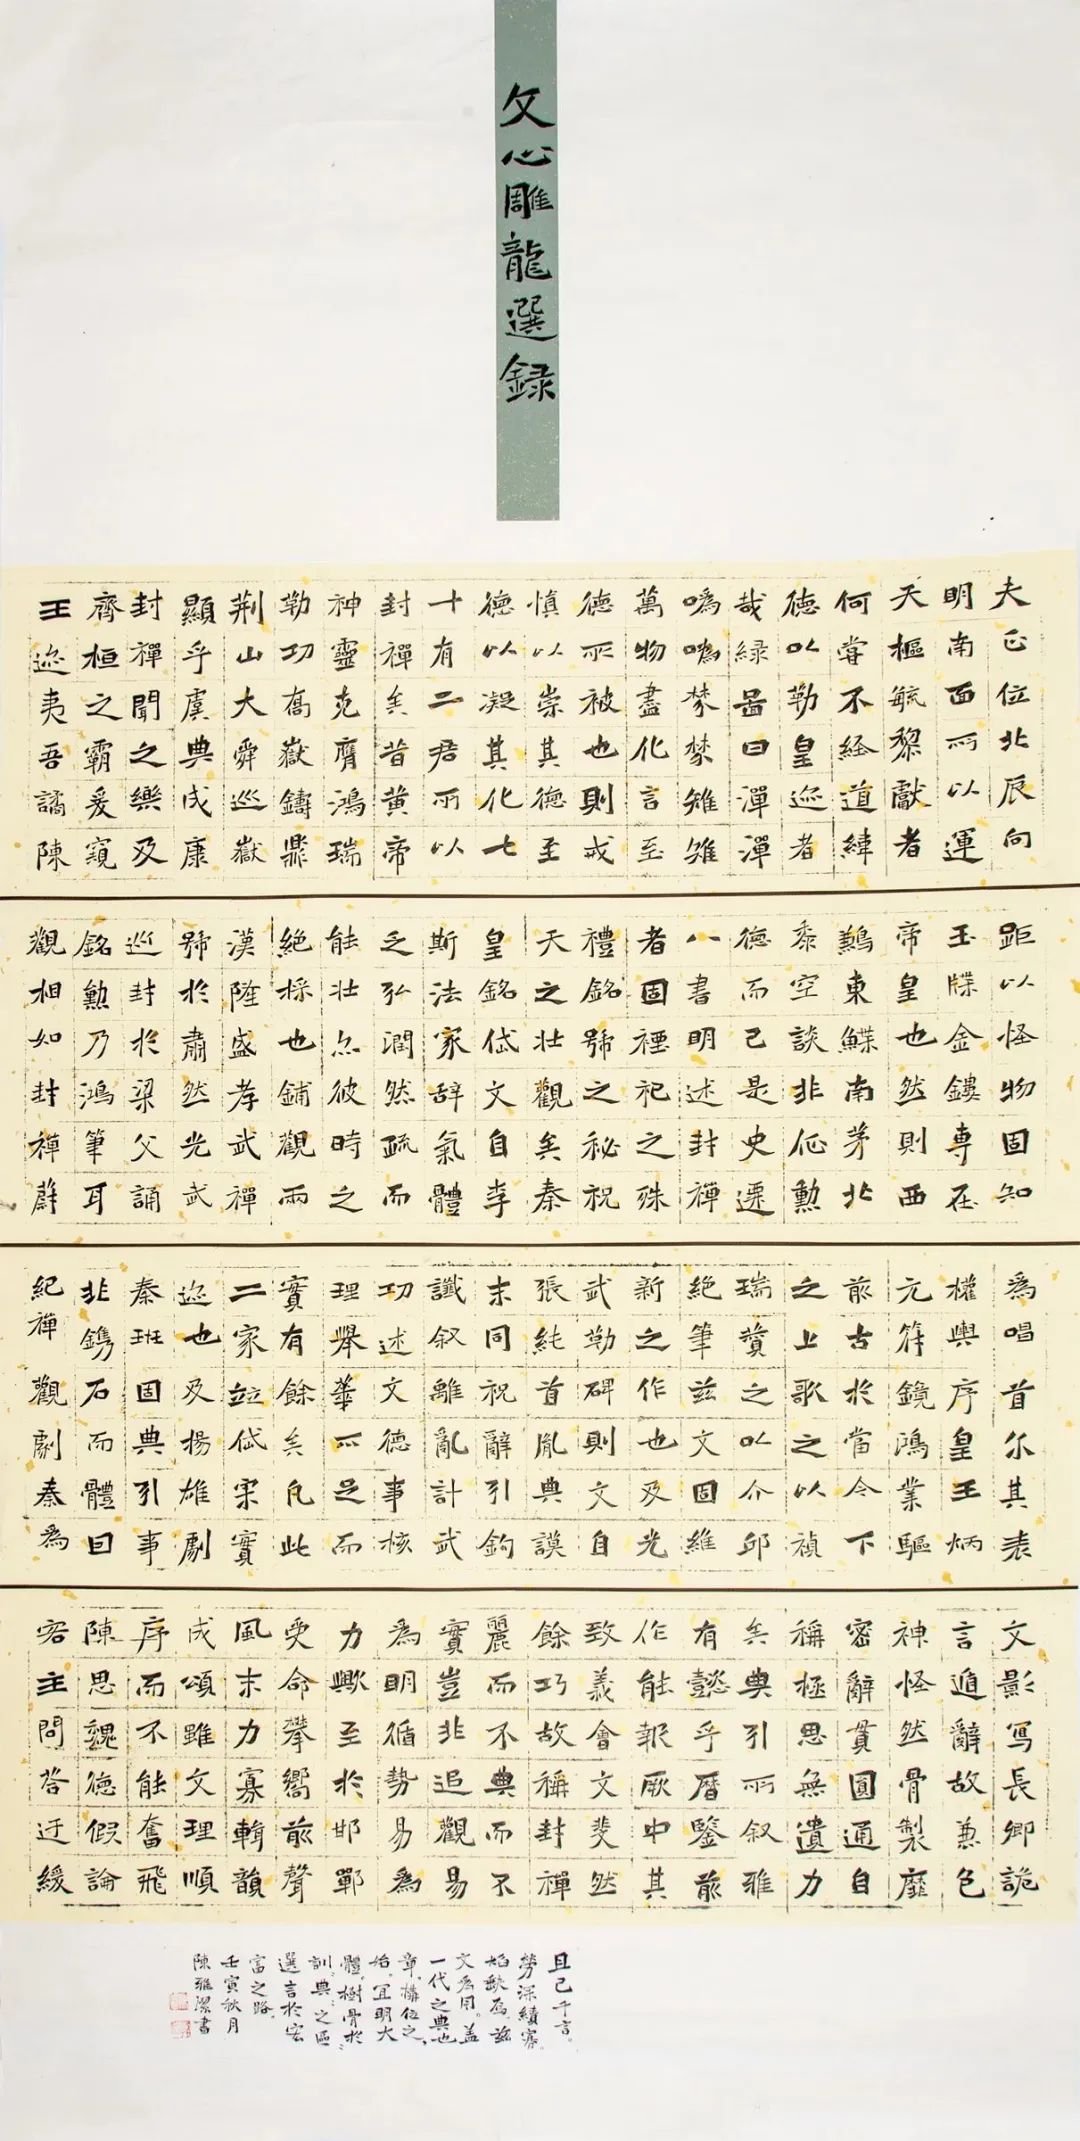 文心雕龍選録
夫正位北辰向
明南面所以運
天樞毓黎獻者
何嘗不經道緯
德以勒皇迹者
哉綠圖曰潬潬
嗚嗚棼棼雉雉
萬物盡化言至
德所被也則戒
慎以崇其德至
德以凝其化七
十有二君所以
封禪矣昔黃帝
神靈克膺鴻瑞
勒功高嶽鑄鼎
荆山大舜巡嶽
顯乎虞典成康
封禪聞之樂及
齊桓之霸爰窺
王迹夷吾譎陳
距以怪物固知
玉牒金鏤專在
帝皇也然則西
鶼東鰈南茅北
黍空談非征勳
德而已是史遷
八書明述封禪
者固禋祀之殊
禮銘號之秘祝
天之壯觀矣秦
皇銘岱文自李
斯法家辭氣體
乏弘潤然疏而
能壯亦彼時之
絕採也鋪觀兩
漢隆盛孝武禪
號於肅然光武
巡封於梁父誦
銘勳乃鴻筆耳
觀相如封禪蔚
為唱首尔其表
權輿序皇王炳
元符鏡鴻業驅
前古於當今下
之上歌之以禎
瑞贊之以介邱
絕筆茲文固維
新之作也及光
武勒碑則文自
張純首胤典謨
末同祝辭引鉤
讖叙離亂計武
功述文德事核
理舉華不足而
實有餘矣凡此
二家並岱宗實
迹也及揚雄劇
秦班固典引事
非鐫石而體因
紀禪觀劇秦為
文影寫長卿詭
言遁辭故兼包
神怪然骨製靡
密辭貫圓通自
稱極思無遺力
矣典引所叙雅
有懿乎曆鑒前
作能報厥中其
致義會文斐然
餘巧故稱封禪
麗而不典而不
實豈非追觀易
為明循勢易為
力歟至於邯鄲
受命攀嚮前聲
風末力寡輯韻
成頌雖文理順
序而不能奮飛
陳思魏德假論
客主問答迂緩
且已千言。
勞深績寡。
焰缺焉。茲
文為用。蓋
一代之典也
章。構位之
始。宜明大
體。樹骨於
訓典之區
選言於宏
富之路。
壬寅秋月
陳雅潔書